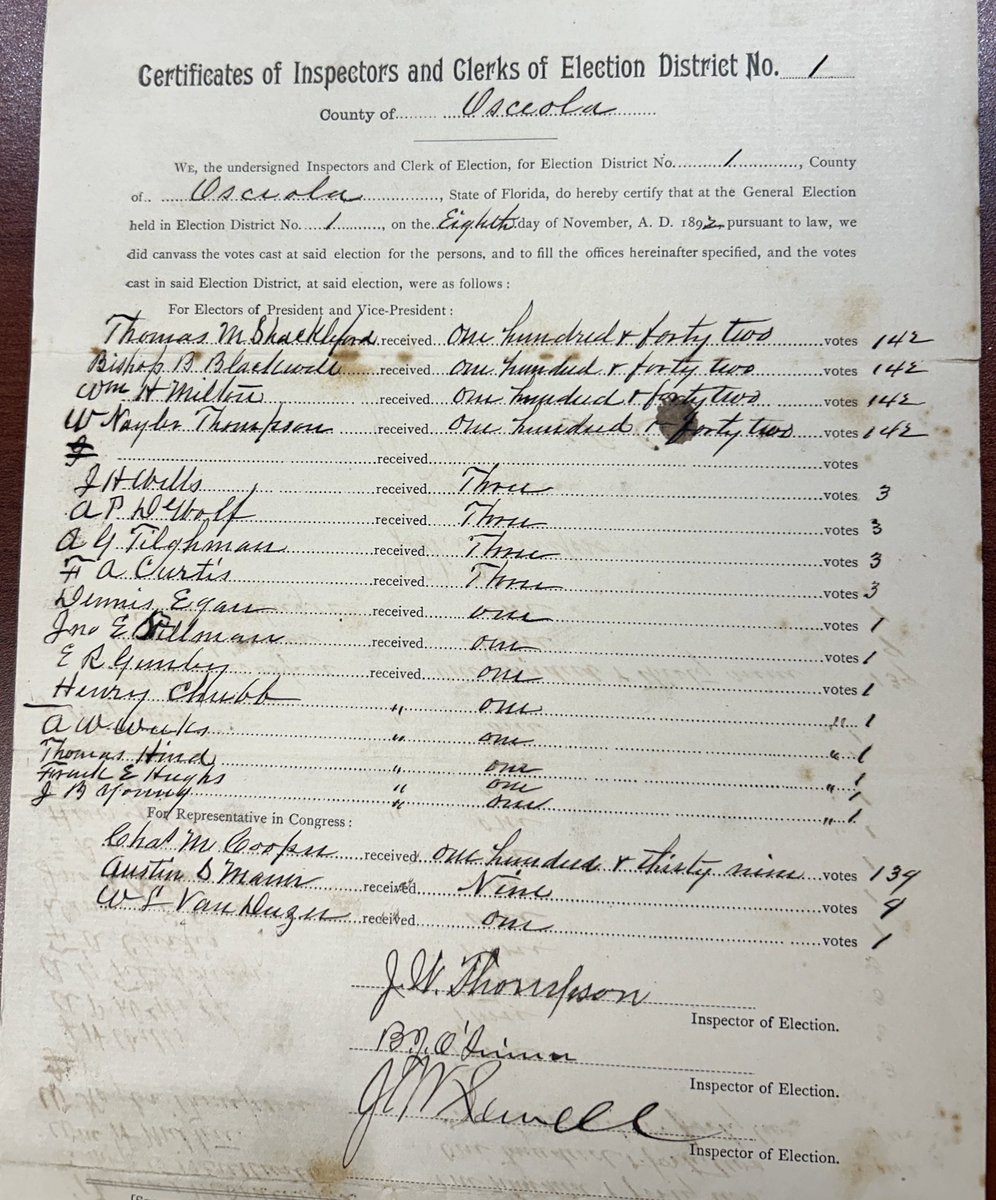 Certificates of Inspectors and Clerks of Election District No. 1
County of Osceola
WE, the undersigned Inspectors and Clerk of Election, for Election District No. 1, County
of Osceola, State of Florida, do hereby certify that at the General Election
held in Election District No. 1, on the Eighth day of November, A. D. 1892 pursuant to law, we
did canvass the votes cast at said election for the persons, and to fill the offices hereinafter specified, and the votes
cast in said Election District, at said election, were as follows:
For Electors of President and Vice-President:
Thomas M Shackleford received one hundred & forty two votes 142
Bishop B Blackwell received one hundred & forty two votes 142
Wm H Milton received one hundred & forty two votes 142
W Naylor Thompson received one hundred & forty two votes 142
received votes
J H Wells received Three votes 3
A P DeWolf received Three votes 3
A G Tilghman received Three votes 3
F A Curtis received Three votes 3
Dennis Egan received one votes 1
Jno E Stillman received one votes 1
E R Gunby received one votes 1
Henry Chubb " one " 1
A W Weeks " one " 1
Thomas Hind " one 1
Frank E Hughs " one " 1
J B Young " one " 1
For Representative in Congress:
Chas M Cooper received one hundred & thirty nine votes 139
Austin S Mann received Nine votes 9
W L Van Duzer received one votes 1
J. W. Thompson
Inspector of Election.
Inspector of Election.
Sewell
Inspector of Election.